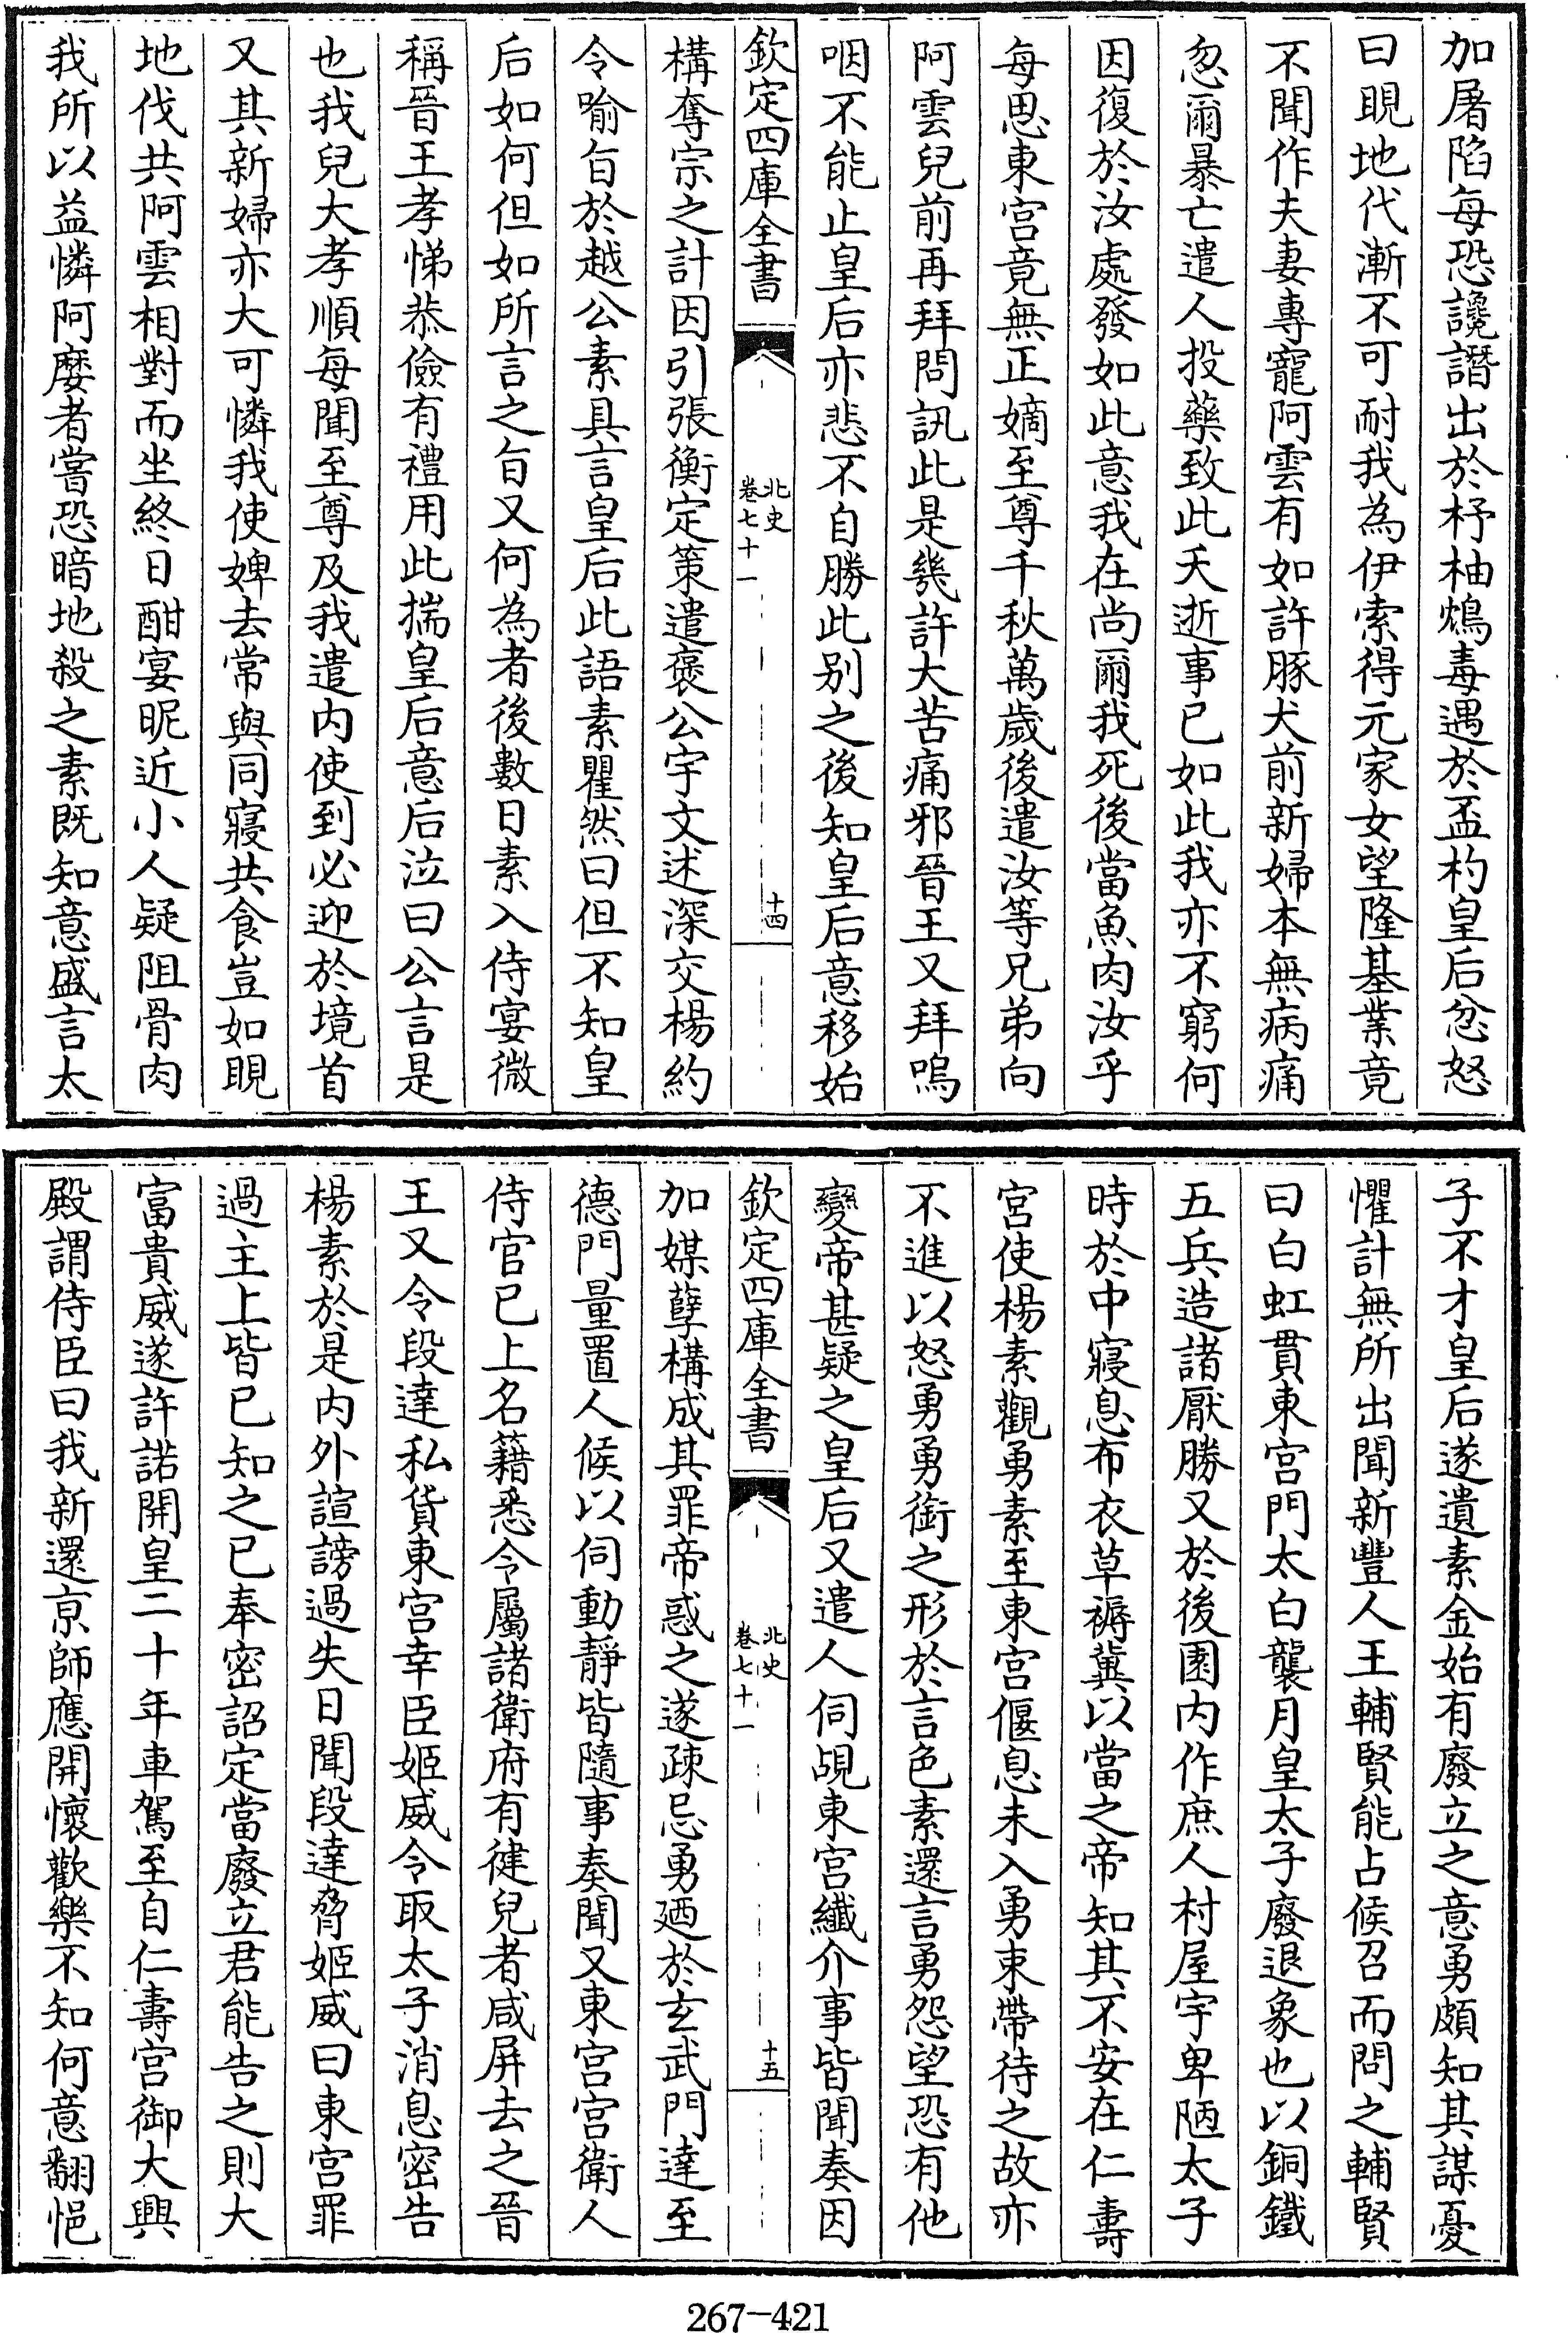 加屠陷每恐讒譖出於杼柚鴆毒遇於盃杓皇后忿怒
曰睍地伐漸不可耐我為伊索得元家女望隆基業竟
不聞作夫妻專寵阿雲有如許豚犬前新婦本無病痛
忽爾暴亡遣人投藥致此夭逝事已如此我亦不窮何
因復於汝處發如此意我在尚爾我死後當魚肉汝乎
每思東宮竟無正嫡至尊千秋萬歲後遣汝等兄弟向
阿雲兒前再拜問訊此是幾許大苦痛邪晉王又拜嗚
咽不能止皇后亦悲不自勝此別之後知皇后意移始
欽定四庫全書
北史
卷七十一
十四
構奪宗之計因引張衡定策遣褒公宇文述深交楊約
令喻旨於越公素具言皇后此語素瞿然曰但不知皇
后如何但如所言之旨又何為者後數日素入侍宴微
稱晉王孝悌恭儉有禮用此揣皇后意后泣曰公言是
也我兒大孝順每聞至尊及我遣內使到必迎於境首
又其新婦亦大可憐我使婢去常與同寢共食豈如睍
地伐共阿雲相對而坐終日酣宴昵近小人疑阻骨肉
我所以益憐阿㦄者嘗恐暗地殺之素既知意盛言太
子不才皇后遂遺素金始有廢立之意勇頗知其謀憂
懼計無所出聞新豐人王輔賢能占候召而問之輔賢
曰白虹貫東宮門太白襲月皇太子廢退象也以銅鐵
五兵造諸厭勝又於後園內作庶人村屋宇卑陋太子
時於中寢息布衣草褥冀以當之帝知其不安在仁壽
宮使楊素觀勇素至東宮偃息未入勇束帶待之故亦
不進以怒勇勇銜之形於言色素還言勇怨望恐有他
變帝甚疑之皇后又遣人伺覘東宮纖介事皆聞奏因
欽定四庫全書
北史
卷七十一
十五
加媒孽構成其罪帝惑之遂疎忌勇廼於玄武門達至
德門量置人候以伺動靜皆隨事奏聞又東宮宮衛人
侍官已上名籍悉令屬諸衛府有健兒者咸屏去之晉
王又令段達私貨東宮幸臣姬威令取太子消息密告
楊素於是內外諠謗過失日聞段達脅姬威曰東宮罪
過主上皆已知之已奉密詔定當廢立君能告之則大
富貴威遂許諾開皇二十年車駕至自仁壽宮御大興
殿謂侍臣曰我新還京師應開懷歡樂不知何意翻悒
267-421